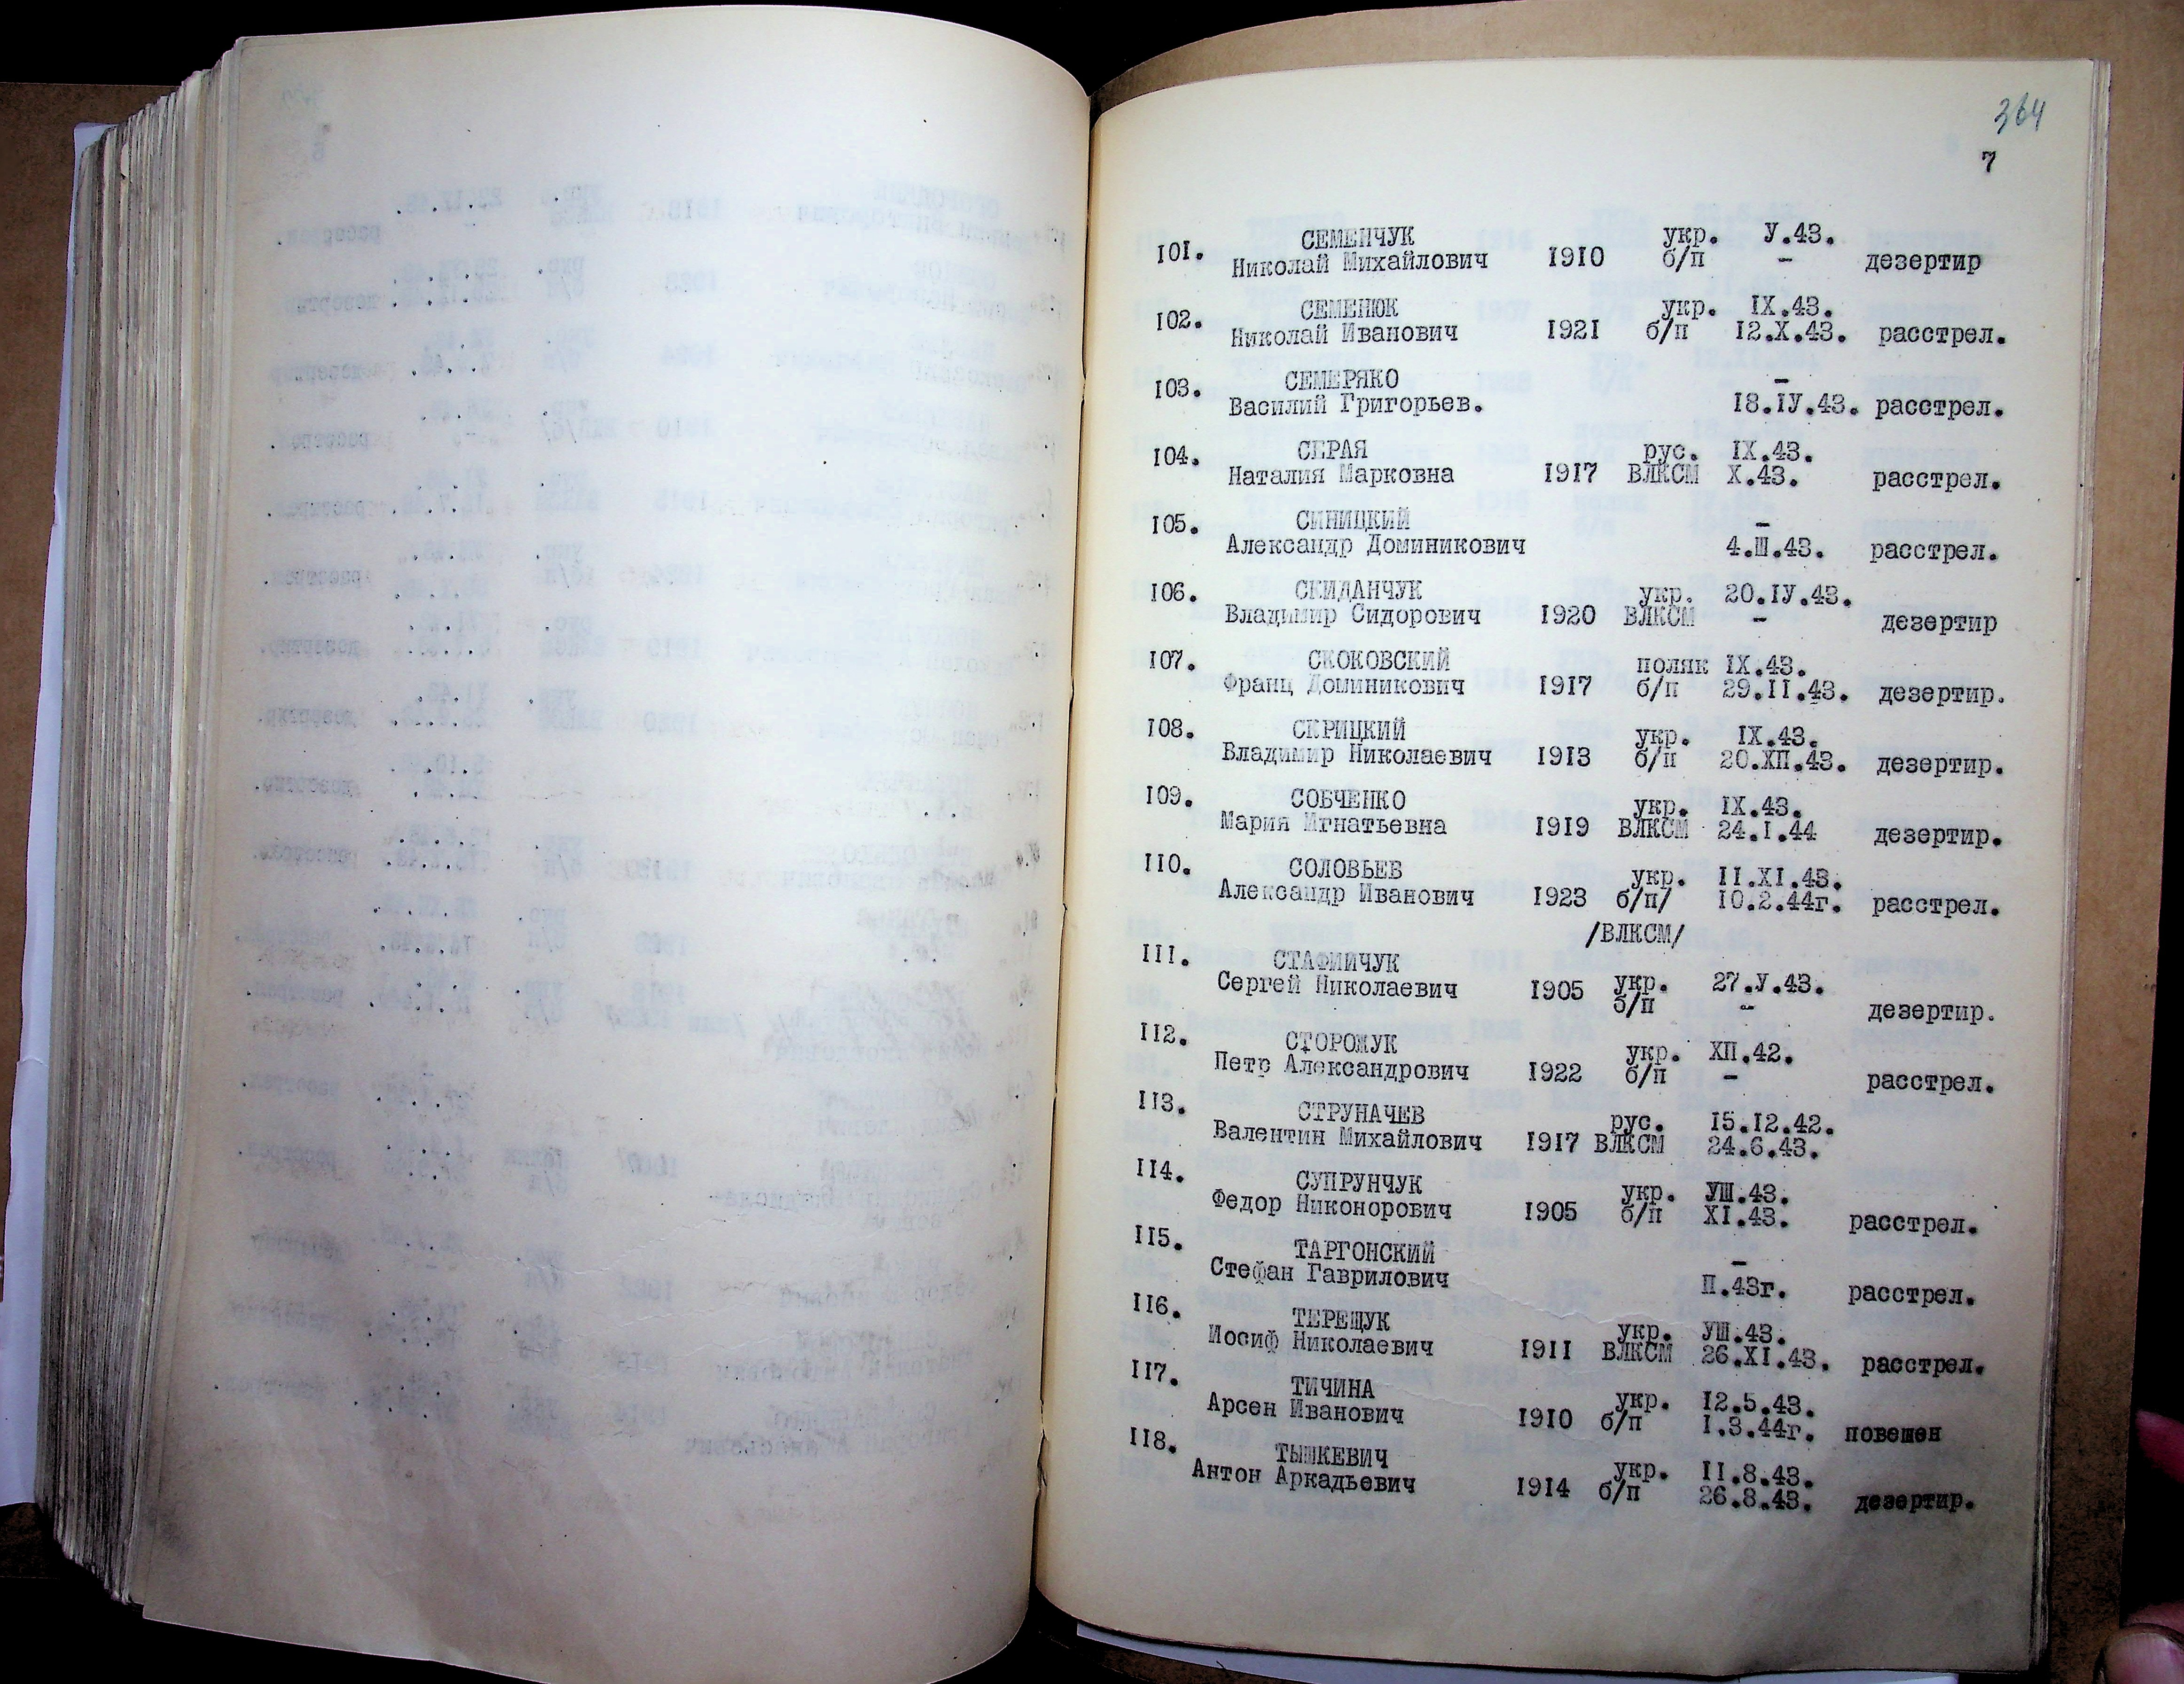 364
7
101. СЕМЕНЧУК укр. У.43.
Николай Михайлович 1910 б/п - дезертир
102. СЕМЕНЮК укр. IX.43.
Николай Иванович 1921 б/п 12.X.43. расстрел.
103. СЕМЕРЯКО -
Василий Григорьев. 18.IУ.43. расстрел.
104. СЕРАЯ рус. IX.43.
Наталия Марковна 1917 ВЛКСМ X.43. расстрел.
105. СИНИЦКИЙ -
Александр Доминикович 4.Ш.43. расстрел.
106. СКИДАНЧУК укр. 20.IУ.43.
Владимир Сидорович 1920 ВЛКСМ - дезертир
107. СКОКОВСКИЙ поляк IX.43.
Франц Доминикович 1917 б/п 29.II.43. дезертир.
108. СКРИЦКИЙ укр. IX.43.
Владимир Николаевич 1913 б/п 20.ХП.43. дезертир.
109. СОБЧЕНКО укр. IX.43.
Мария Игнатьевна 1919 ВЛКСМ 24.I.44 дезертир.
110. СОЛОВЬЕВ укр. II.XI.43.
Александр Иванович 1923 б/п/ 10.2.44г. расстрел.
/ВЛКСМ/
111. СТАФИЙЧУК укр. 27.У.43.
Сергей Николаевич 1905 б/п - дезертир.
112. СТОРОЖУК укр. ХП.42.
Петр Александрович 1922 б/п - расстрел.
113. СТРУНАЧЕВ рус. 15.12.42.
Валентин Михайлович 1917 ВЛКСМ 24.6.43.
114. СУПРУНЧУК укр. УШ.43.
Федор Никонорович 1905 б/п XI.43. расстрел.
115. ТАРГОНСКИЙ -
Стефан Гаврилович П.43г. расстрел.
116. ТЕРЕЩУК укр. УШ.43.
Иосиф Николаевич 1911 ВЛКСМ 26.XI.43. расстрел.
117. ТИЧИНА укр. 12.5.43.
Арсен Иванович 1910 б/п 1.3.44г. повешен
118. ТЫШКЕВИЧ укр. 11.8.43.
Антон Аркадьевич 1914 б/п 26.8.43. дезертир.